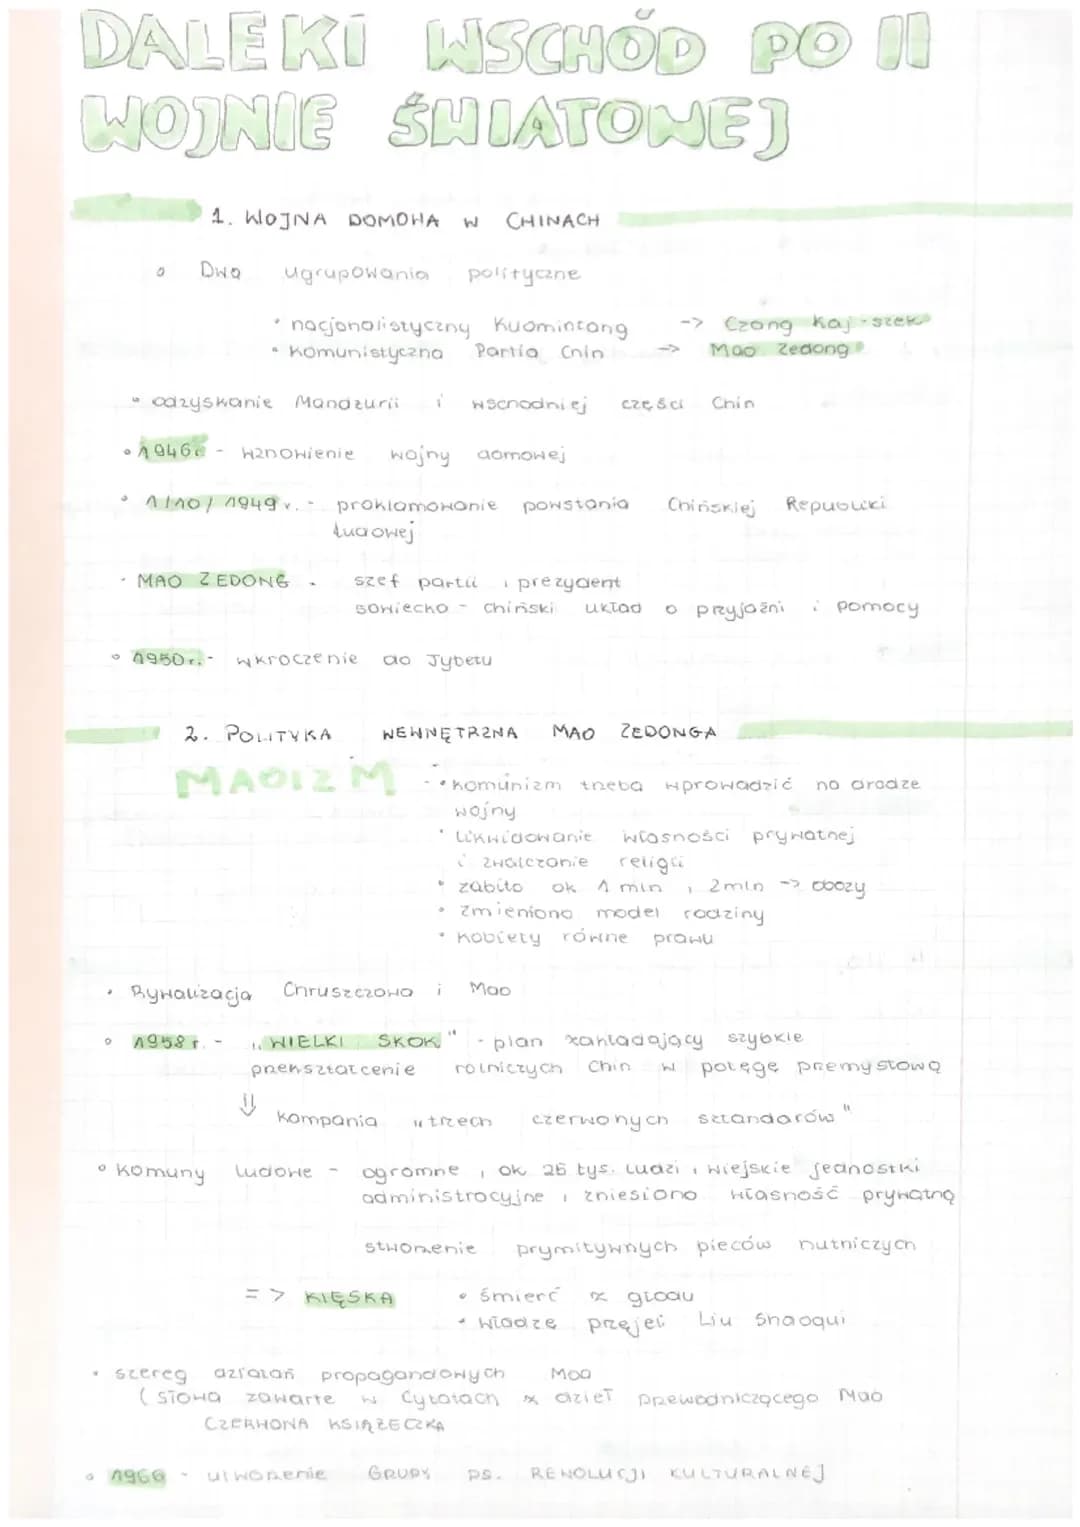 DALEKI WSCHÓD PO II
WOJNIE ŚWIATOWEJ
1. WOJNA DOMOWA W CHINACH
Dwa ugrupowania polityczne
• nacjonalistyczny Kuomintang -> Czang Kaj-szek
• komunistyczna Partia Chin -> Mao Zedong
• odzyskanie Mandżurii i wschodniej części Chin
• 1946r. - wznowienie wojny domowej
• 1/10/1949 r. - proklamowanie powstania Chińskiej Republiki
Ludowej
• MAO ZEDONG - szef partii i prezydent
sowiecko - chiński układ o przyjaźni i pomocy
• 1950r. - wkroczenie do Tybetu
2. POLITYKA WEWNĘTRZNA MAO ZEDONGA
MAOIZM - • komunizm trzeba wprowadzić na drodze
wojny
• likwidowanie własności prywatnej
i zwalczanie religii
• zabito ok 1 mln, 2mln -> obozy
• zmieniono model rodziny
• kobiety równe prawu
• Rywalizacja Chruszczowa i Mao
• 1958 r. - „WIELKI SKOK" - plan zakładający szybkie
przekształcenie rolniczych Chin w potęgę przemysłową
⇓ kampania „trzech czerwonych sztandarów"
• Komuny ludowe - ogromne, ok 25 tys. ludzi, wiejskie jednostki
administracyjne, zniesiono własność prywatną
stworzenie prymitywnych pieców hutniczych
=> KLĘSKA • śmierć z głodu
• władzę przejęli Liu Shaoqui
• szereg działań propagandowych Mao
(słowa zawarte w Cytatach z dzieł Przewodniczącego Mao
CZERWONA KSIĄŻECZKA
• 1966 - utworzenie GRUPY DS. REWOLUCJI KULTURALNEJ